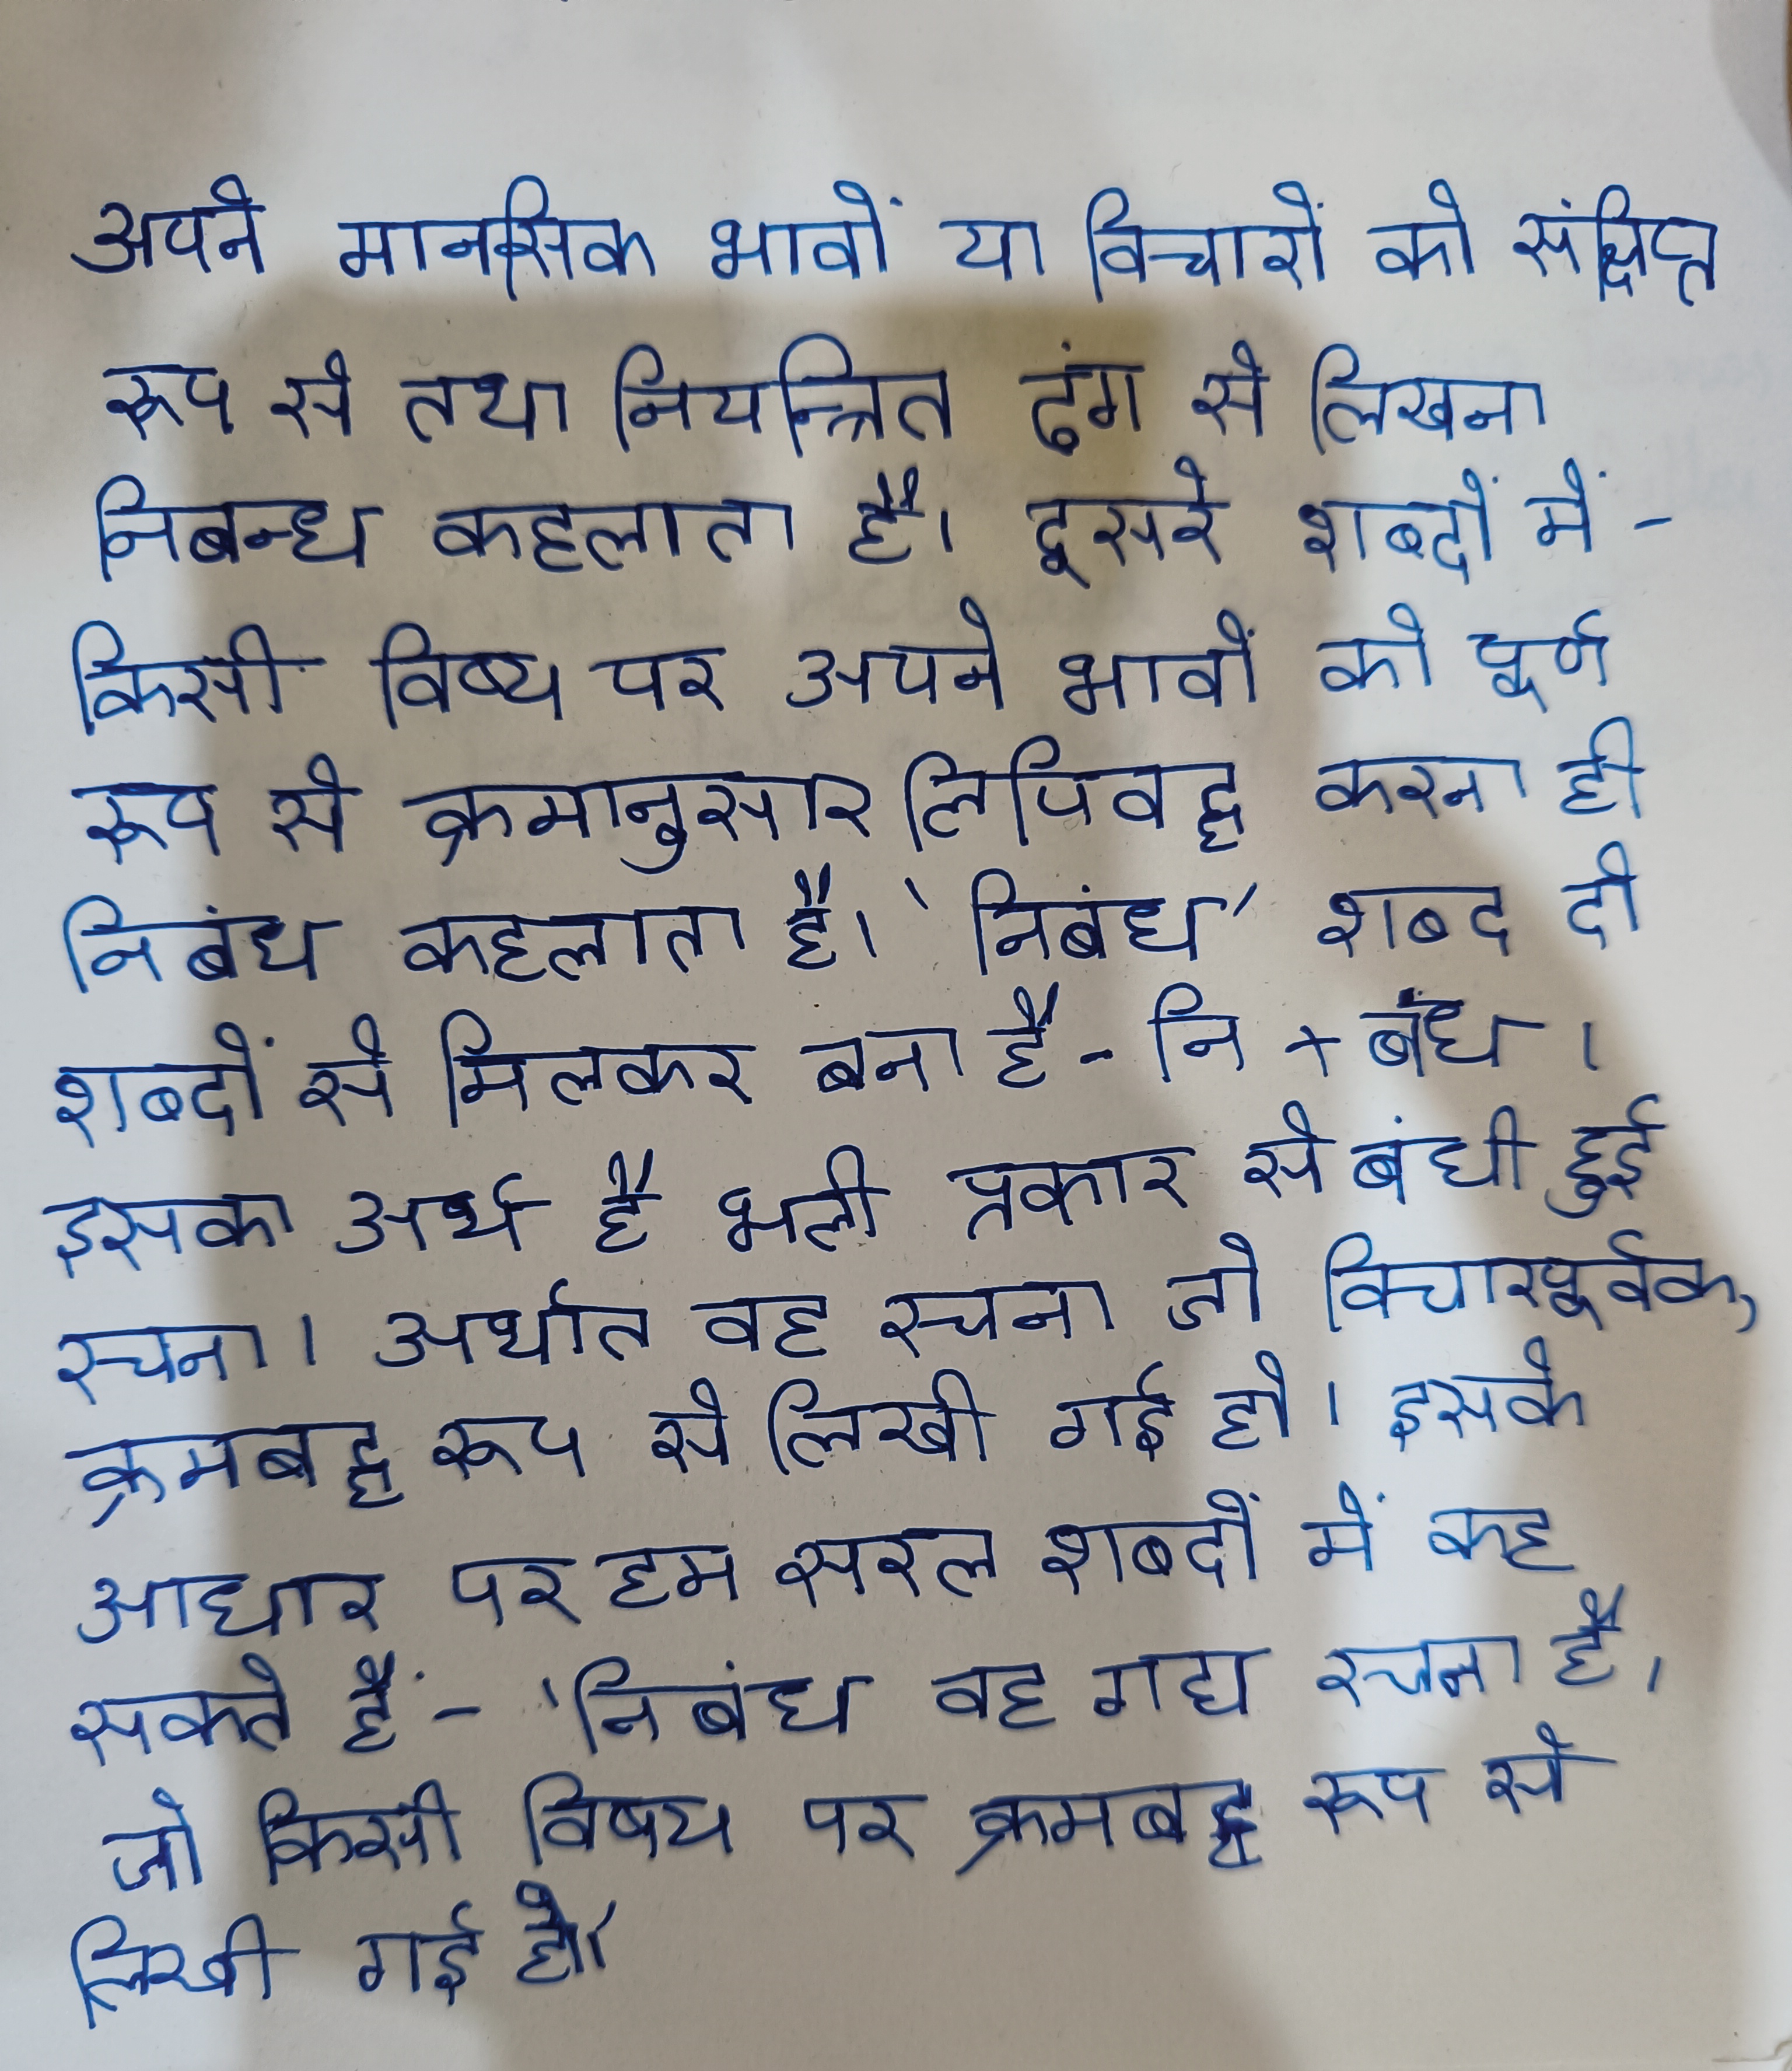 अपने मानसिक भावों या विचारों को संक्षिप्त
रूप से तथा नियन्त्रित ढंग से लिखना
निबन्ध कहलाता है। दूसरे शब्दों में -
किसी विष्य पर अपने भावों को पूर्ण
रूप से क्रमानुसार लिपिवद्ध करना ही
निबंध कहलाता है। 'निबंध' शब्द दो
शब्दों से मिलकर बना है - नि + बंध ।
इसका अर्थ है भली प्रकार से बंधी हुई
रचना। अर्थात वह रचना जो विचारपूर्वक,
क्रमबद्ध रूप से लिखी गई हो। इसके
आधार पर हम सरल शब्दों में कह
सकते हैं - 'निबंध वह गद्य रचना है,
जो किसी विषय पर क्रमबद्ध रूप से
लिखी गई हो।'